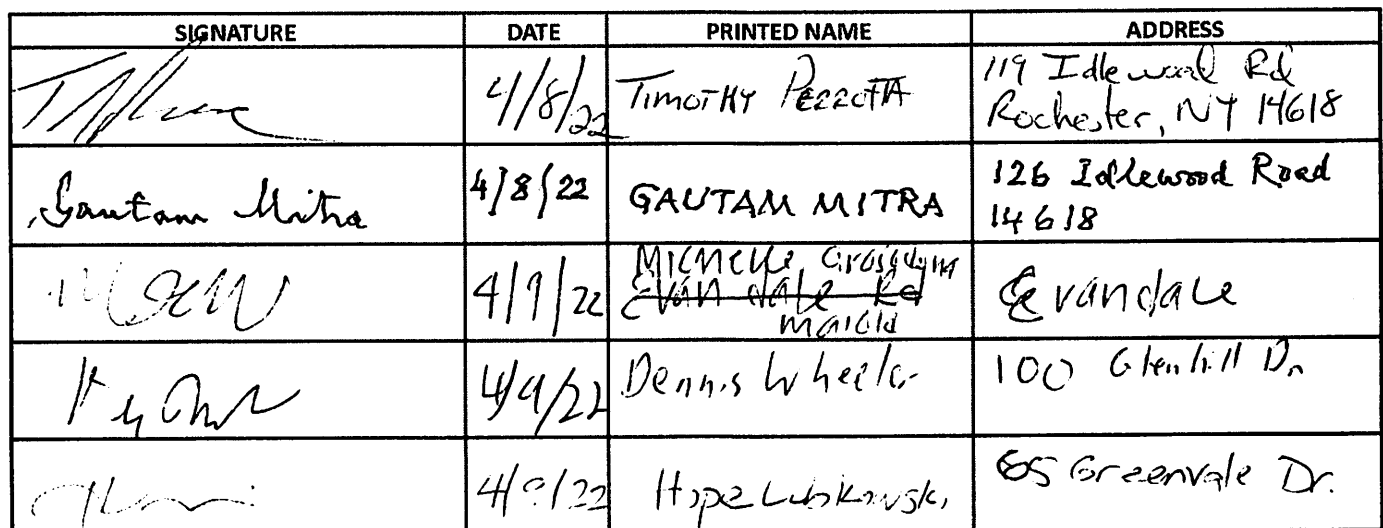 SIGNATURE DATE PRINTED NAME ADDRESS
4/8/22 TIMOTHY PERROTTA 119 Idlewood Rd
Rochester, NY 14618
Gautam Mitra 4/8/22 GAUTAM MITRA 126 Idlewood Road
14618
Michelle
4/9/22 Evandale Rd Evandale
4/9/22 Dennis Wheeler 100 Glenhill Dr
4/9/22 Hope 65 Greenvale Dr.